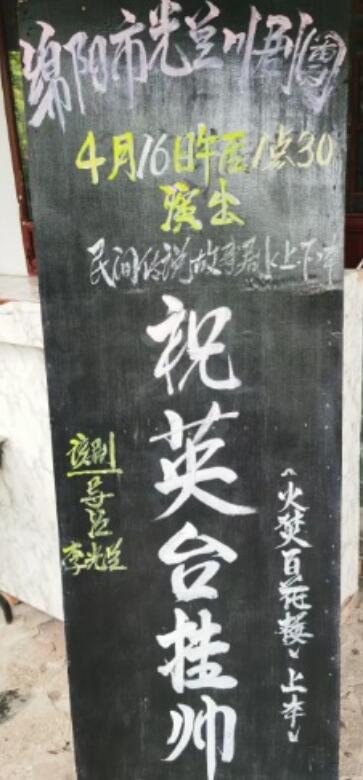 绵阳市光兰川剧团
4月16日午后1点30
演出
民间传说故事薪水上下本
祝英台挂帅
《火焚百花楼》上本
该剧
导演
李光兰